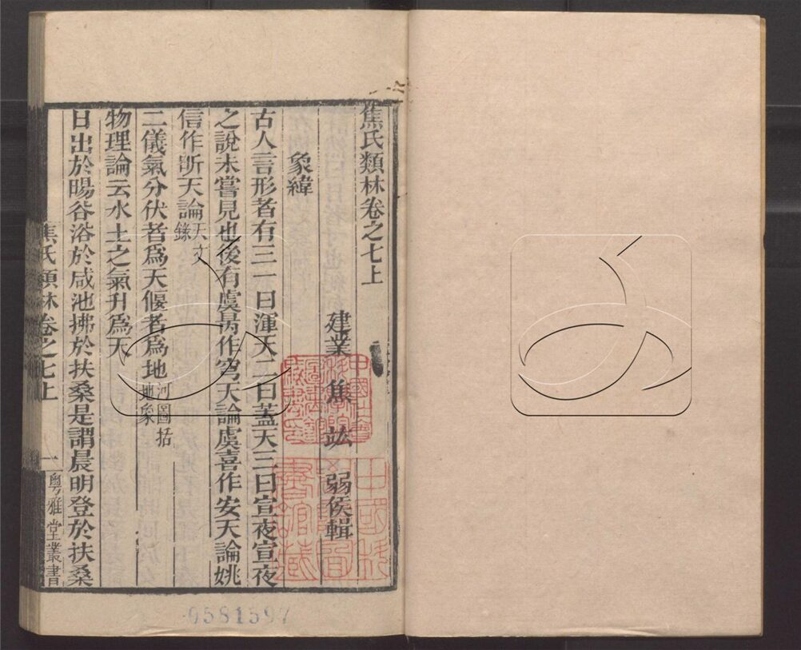 焦氏類林卷之七上
建業 焦竑 弱侯輯
象緯
古人言形者有三一曰渾天二曰蓋天三曰宣夜宣夜
之說未嘗見也後有虞昺作穹天論虞喜作安天論姚
信作昕天論天文錄
二儀氣分伏者為天偃者為地河圖括地象
物理論云水土之氣升為天
日出於暘谷浴於咸池拂於扶桑是謂晨明登於扶桑
焦氏類林卷之七上 一 粵雅堂叢書
0581597